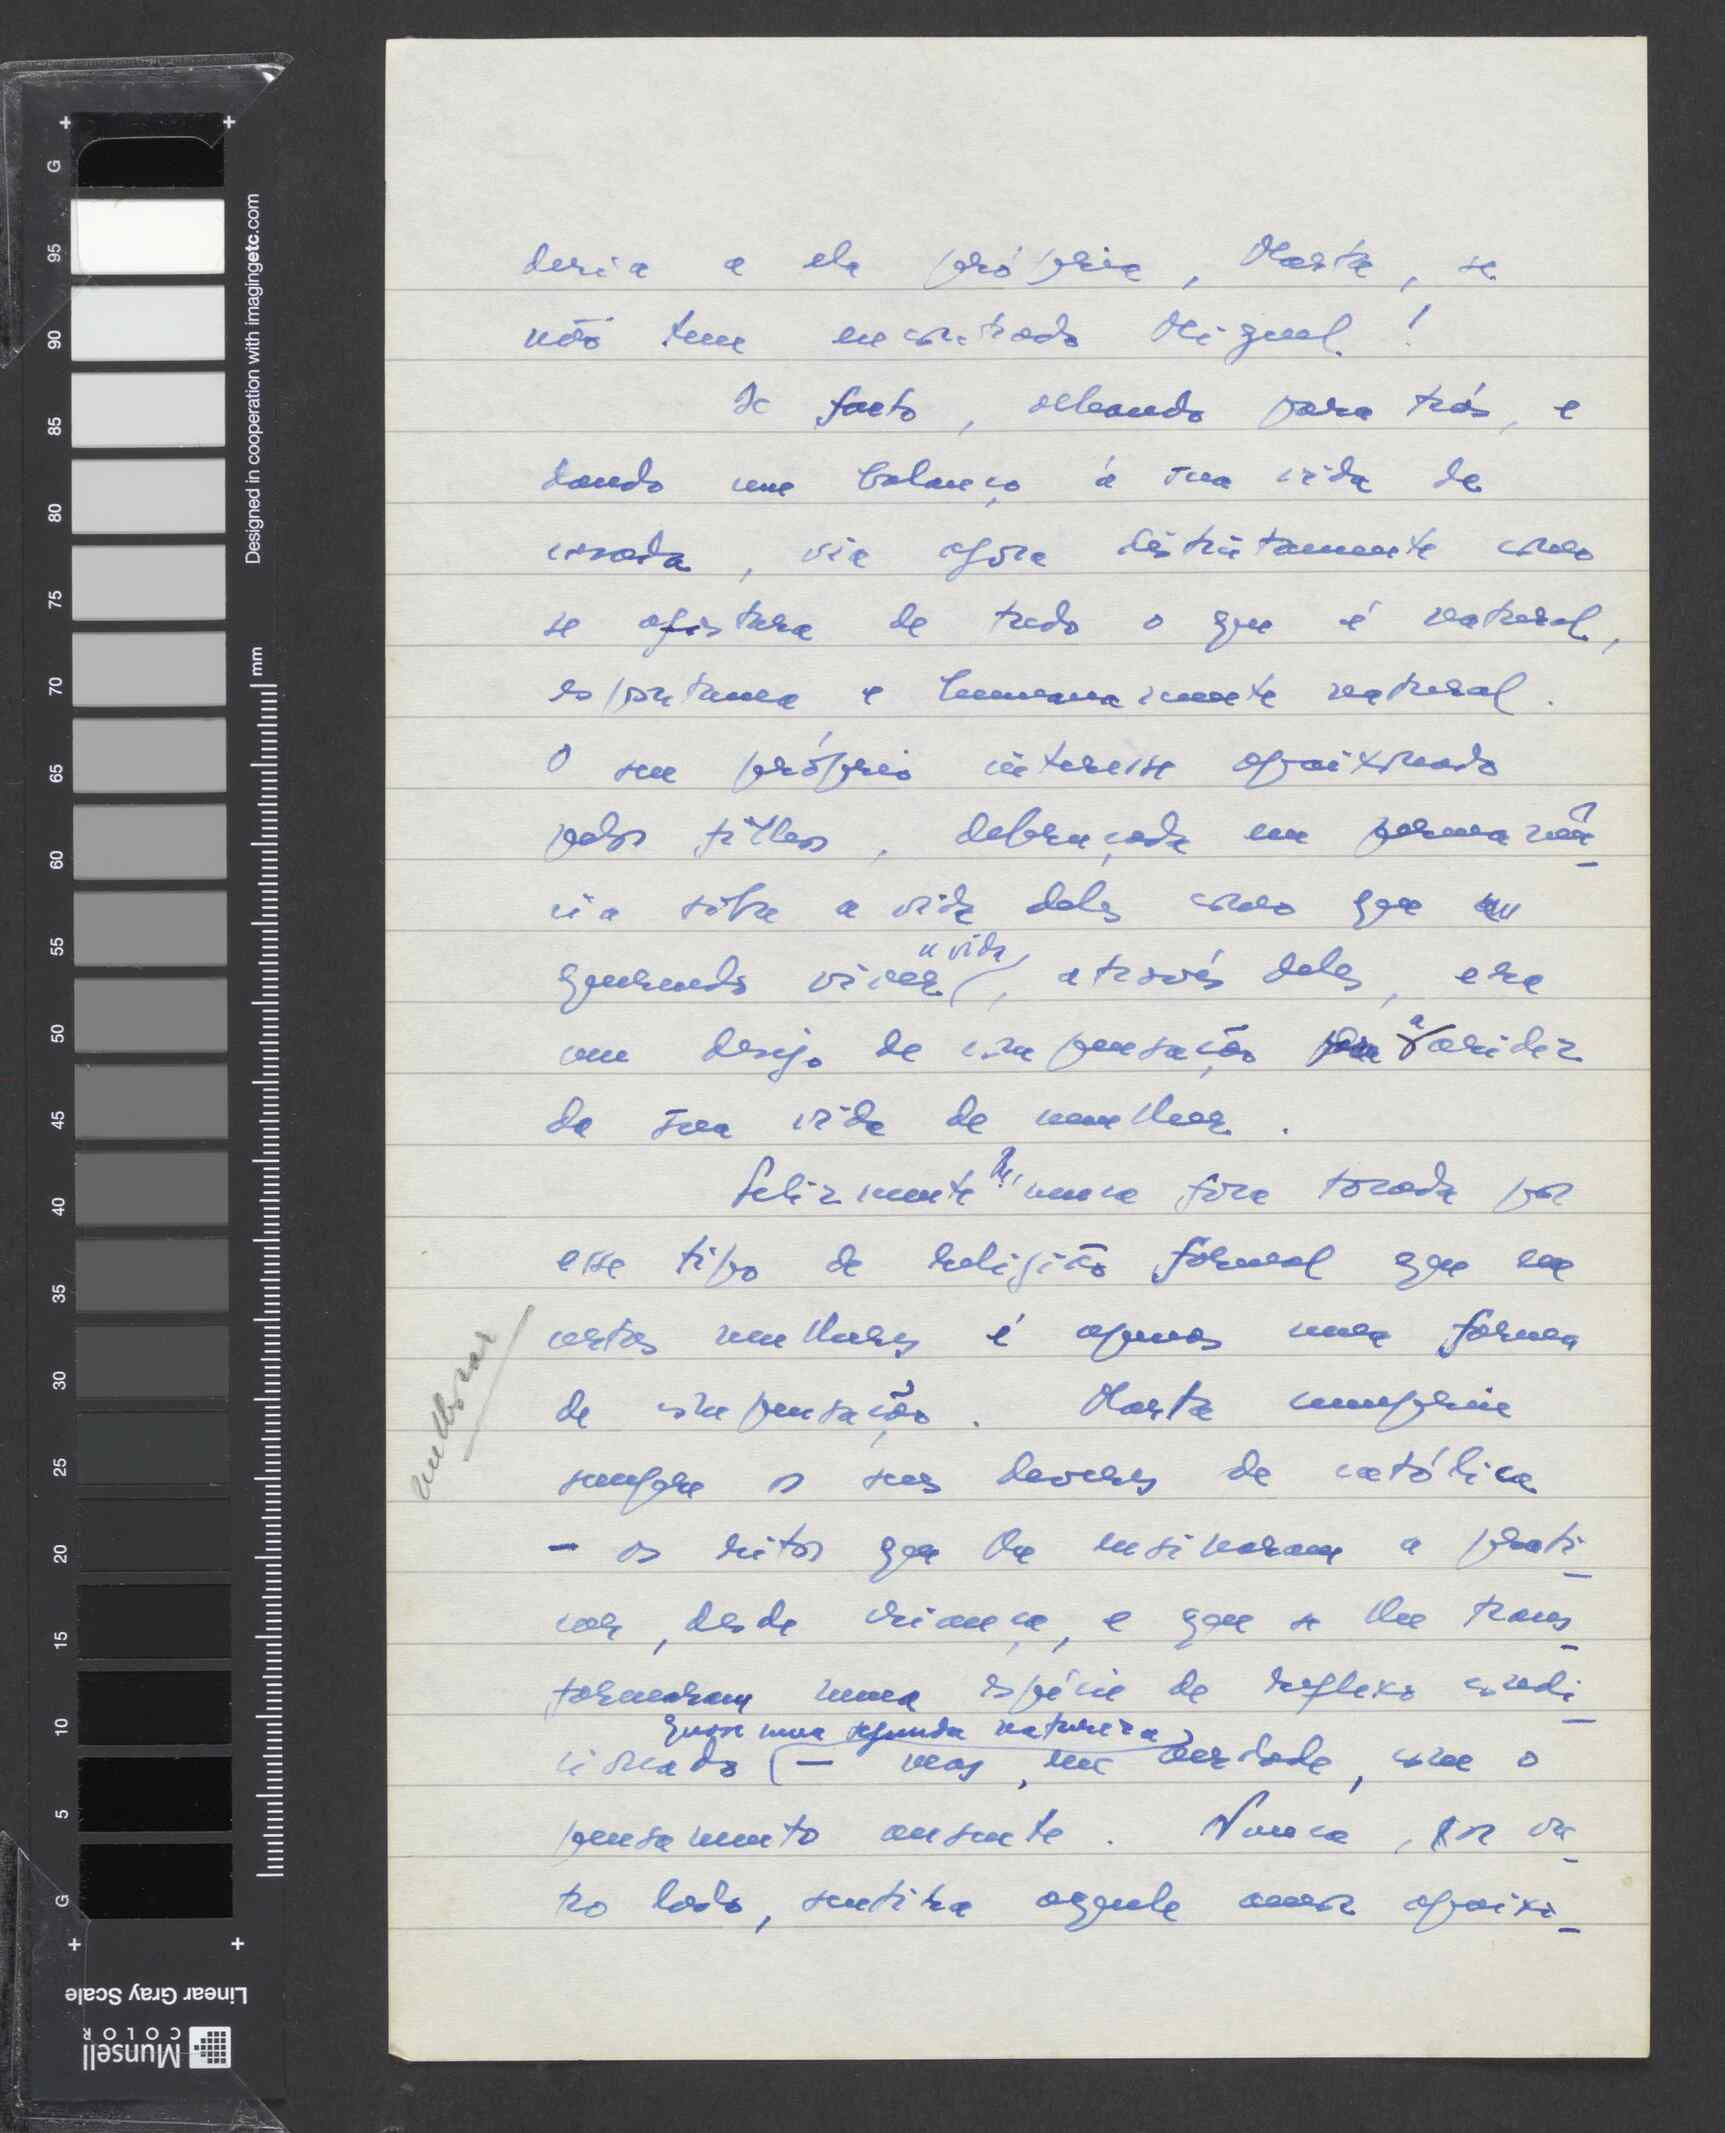 deria a ela própria, Marta, se
não tem encontrado Miguel!
De facto, olhando para trás, e
dando um balanço à sua vida de
casada, via agora distintamente como
se afastara de tudo o que é natural,
espontanea e humanamente natural.
O seu próprio interesse apaixonado
pelos filhos, debruçada em permanên-
cia sôbre a vida deles como que
querendo viver a vida, através deles, era
um desejo de compensação para a aridez
da sua vida de mulher.
Felizmente nunca fora tocada por
esse tipo de religião formal que em
certas mulheres é apenas uma forma
de compensação. Marta cumprira
sempre os seus deveres de católica
- os ritos que lhe ensinaram a prati-
car, desde criança, e que se lhe trans-
formaram numa espécie de reflexo condi-
quase uma segunda natureza
cionado - mas, em verdade, com o
pensamento ausente. Nunca, por ou-
tro lado, sentira aquele amor apaixo-
melhorar
Designed in cooperation with imagingetc.com
mm
G 95 90 85 80 75 70 65 60 55 50 45 40 35 30 25 20 15 10 5 G
Linear Gray Scale
Munsell
COLOR